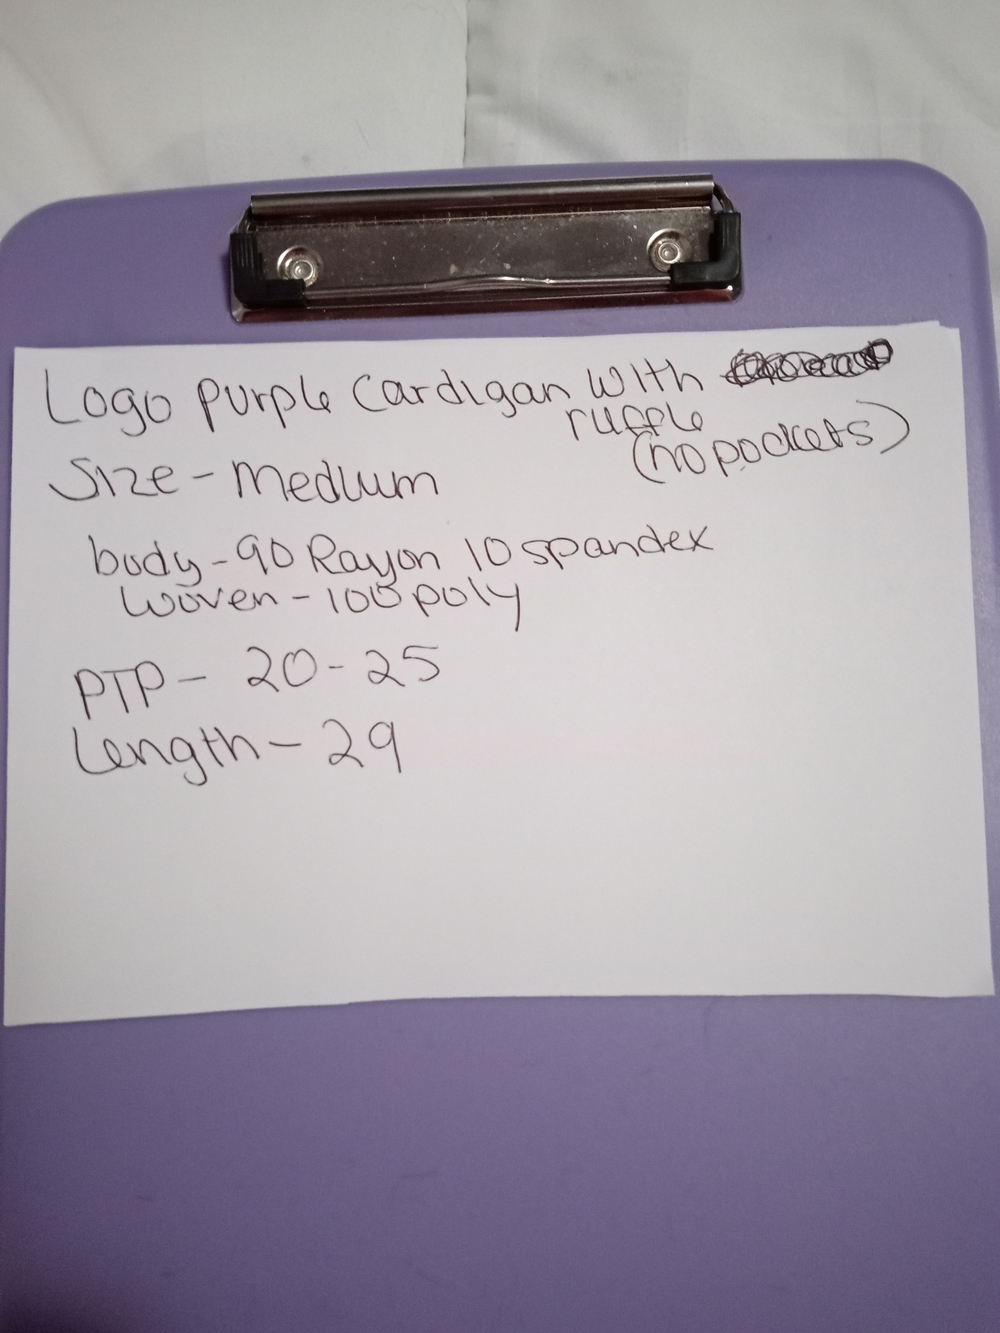 Logo purple cardigan with
ruffle
(no pockets)
Size - Medium
body - 90 Rayon 10 spandex
woven - 100 poly
PTP - 20 - 25
Length - 29